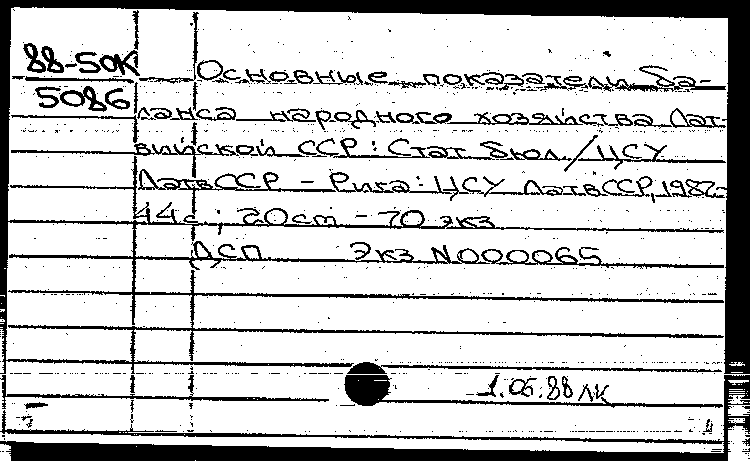 88-50К Основные показатели ба-
5086 ланса народного хозяйства Лат-
вийской ССР : Стат. бюл. / ЦСУ
ЛатвССР - Рига : ЦСУ ЛатвССР, 1987-
44с ; 20cm - 70 экз
ДСП Экз N000065
1.06.88 ЛК